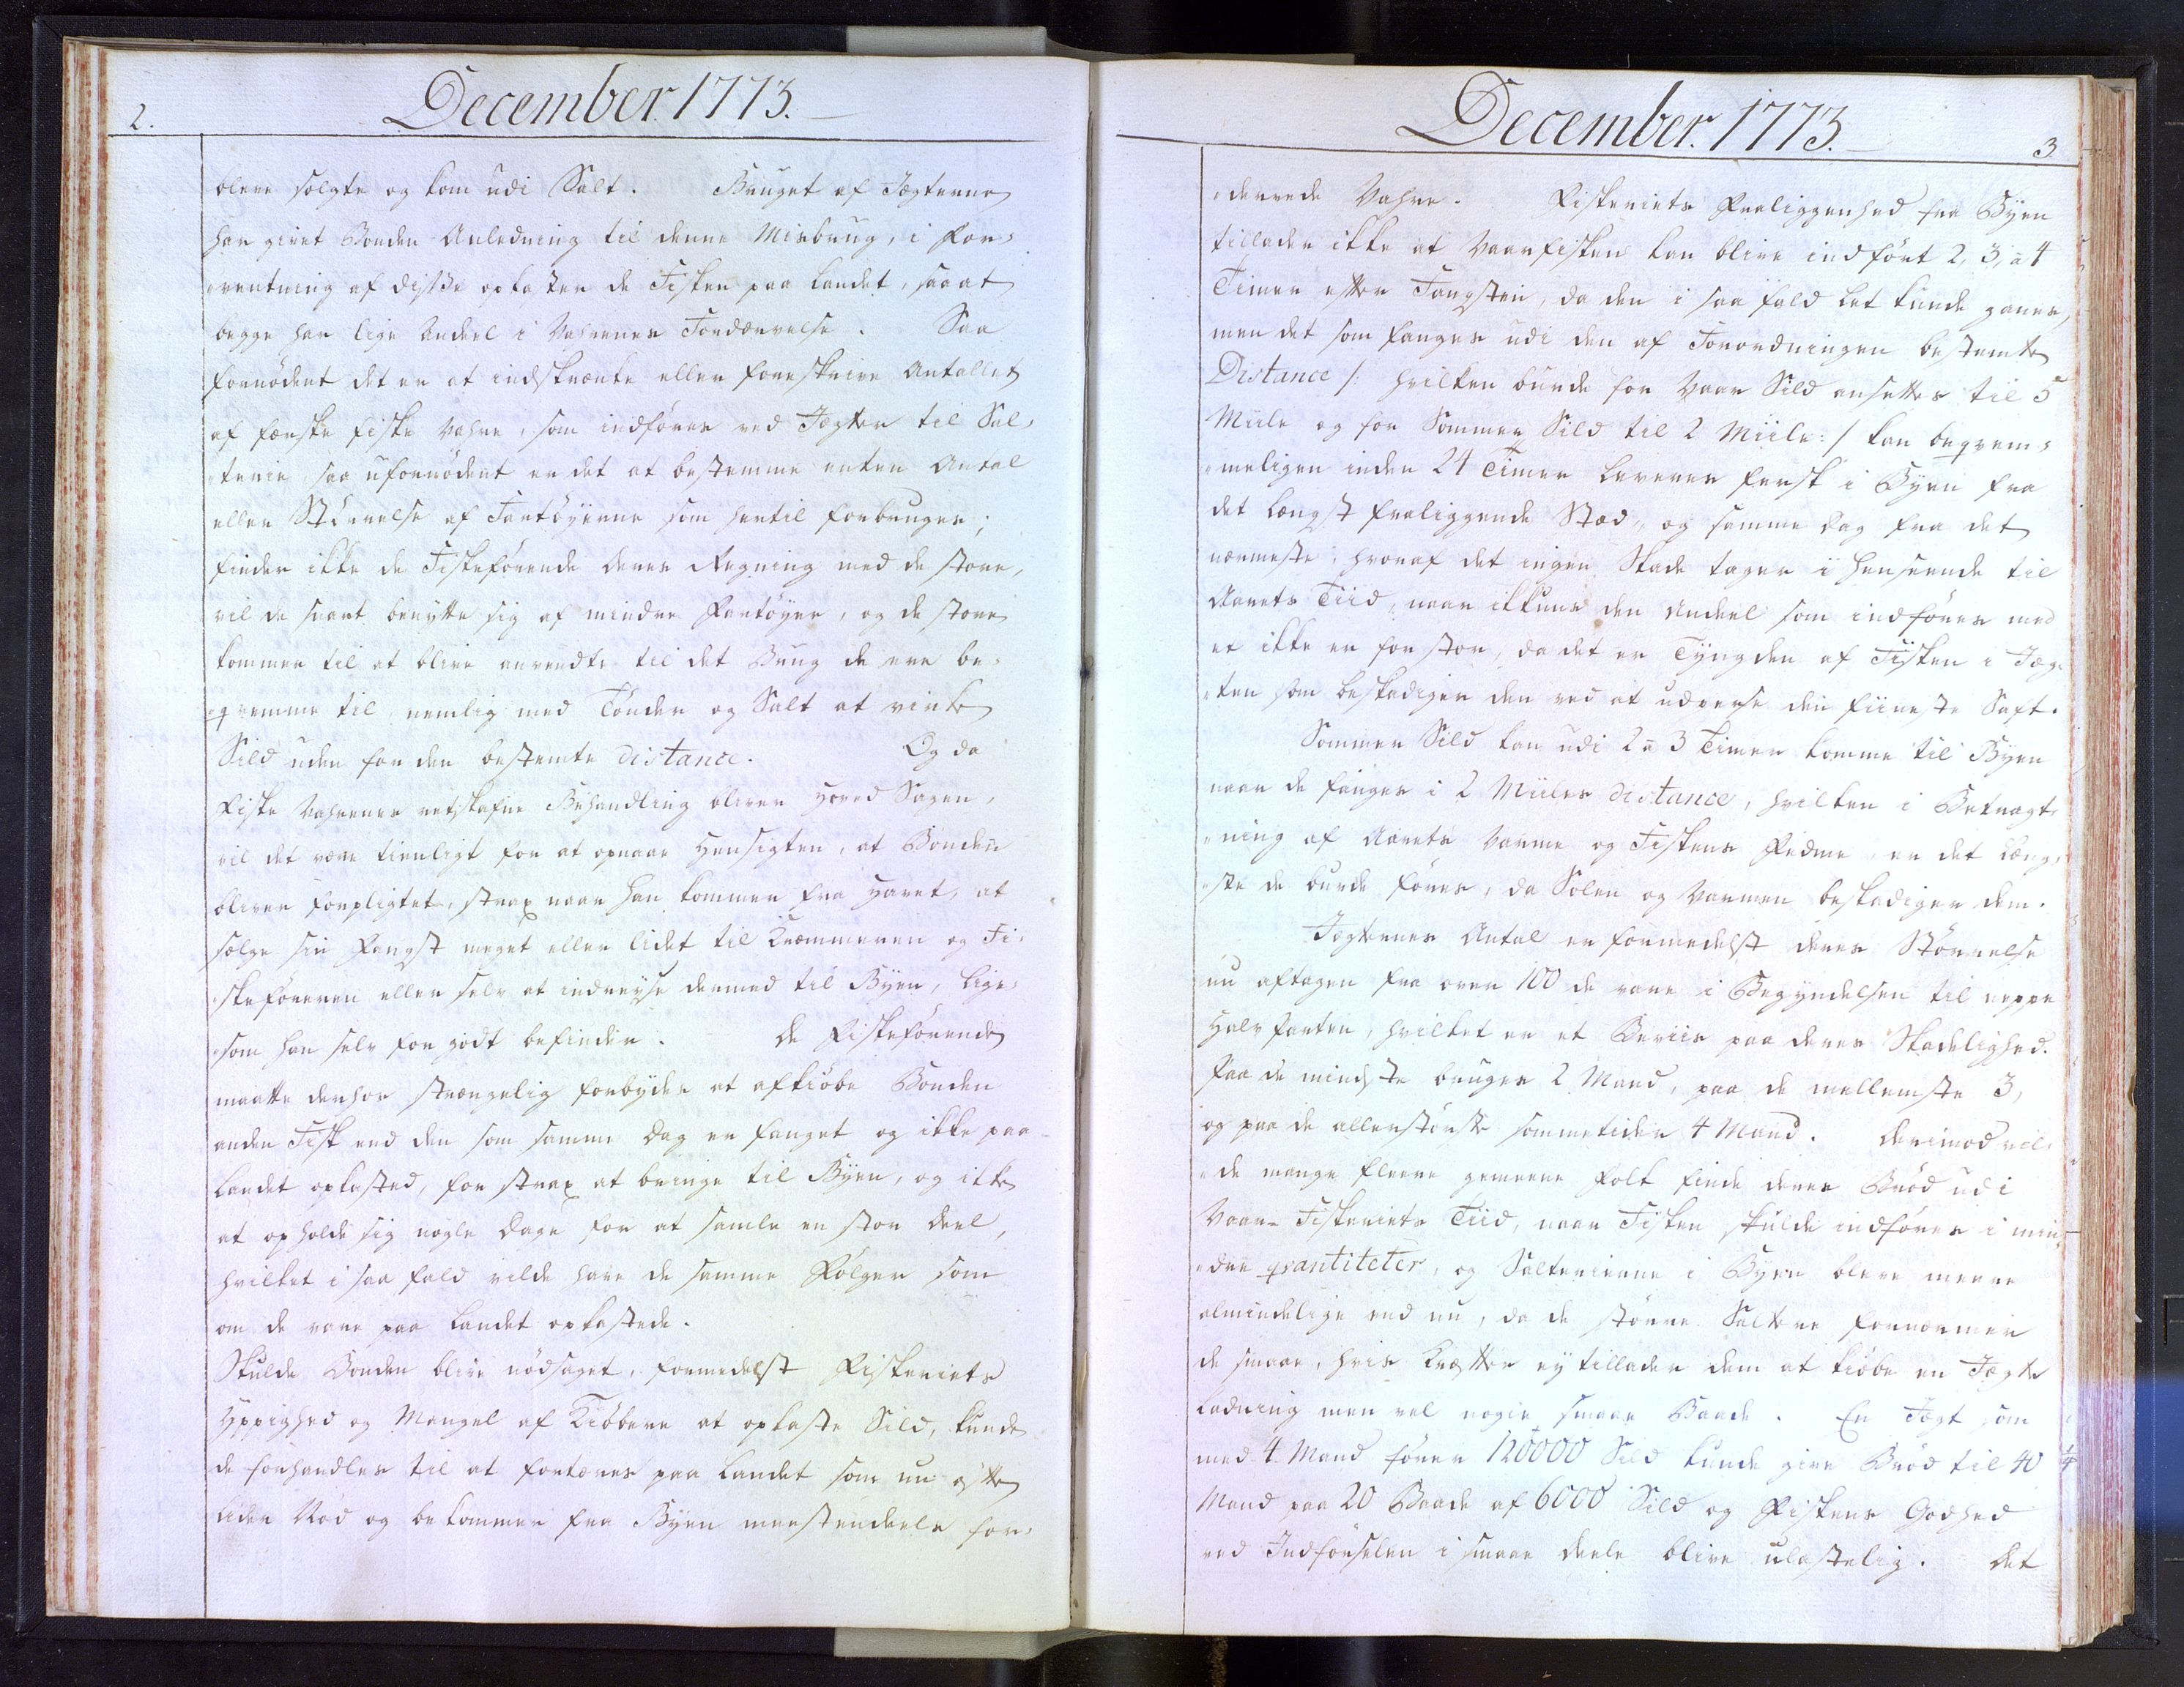 2.
December. 1773.
blere solgte og kom udi Salt. Bruget af Jægterne
har givet Bonden Anledning til denne Misbrug, i for-
ventning af disse opkaster de Fisken paa Landet, saa at
begge har lige Andeel i Vahrenes Fordærvelse. Saa
fornödent det er at indskrænke eller foreskrive Antallet
af færske fiske Vahre, som indföres ved Jægter til Sal-
terie, saa ufornödent er det at bestemme enten Antal
eller Störrelse af Fartöyerne som hertil forbruges;
finder ikke de Fiskeförende deres Regning med de store,
vil de snart benytte sig af mindre Fartöyer, og de store
kommer til at blive anvendte til det Brug de ere be-
qvemme til nemlig med Tönder og Salt at virke
Sild uden for den bestemte distance. Og da
Fiske Vahrenes retskafne Behandling bliver Hoved Sagen,
vil det være tienligt for at opnaae Hensigten, at Bonden
bliver forpligtet, strax naar han kommer fra Havet, at
sælge sin Fangst meget eller lidet til Kræmmeren og Fi-
skeföreren eller selv at indreyse dermed til Byen, lige-
som han selv for godt befinder. De Fiskeförende
maatte derfor strængelig forbydes at afkiöbe Bonden
anden Fisk end den som samme Dag er fanget og ikke paa
Landet opkasted, for strax at bringe til Byen, og ikke
at opholde sig nogle Dage for at samle en stor deel,
hvilket i saa fald vilde have de samme Fölger som
om de vare paa Landet opkastede.
Skulde Bonden blive nödsaget, formedelst Fiskeriets
Yppighed og Mangel af Kiöbere at opkaste Sild, kunde
de forhandles til at fortæres paa Landet som nu ofte
lider Nöd og bekommer fra Byen meestendeels for-
December. 1773.
3.
dervede Vahre. Fiskeriets Fraliggenhed fra Byen
tillader ikke at Vaarfisken kan blive indfört 2, 3, à 4
Timer efter Fangsten, da den i saa fald let kunde ganes,
men det som fanges udi den af Forordningen bestemte
Distance /: hvilken burde for Vaar Sild ansettes til 5
Miile og for Sommer Sild til 2 Miile :/ kan beqvem-
meligen inden 24 Timer leveres fersk i Byen fra
det længst fraliggende Stæd, og samme Dag fra det
nærmeste, hvoraf det ingen Skade tager i Henseende til
Aarets Tiid, naar ikkuns den Andeel som indföres med
et ikke er for stor, da det er Tyngden af Fisken i Jæg-
ten som beskadiger den ved at udperse den fiineste Saft.
Sommer Sild kan udi 2 à 3 Timer komme til Byen
naar de fanges i 2 Miiles distance, hvilken i Betragt-
ning af Aarets Varme og Fiskens Fedme er det læng-
ste de burde föres, da Solen og Varmen beskadiger dem.
Jægternes Antal er formedelst deres Störrelse
nu aftagen fra over 100 de vare i Begyndelsen til neppe
Halv parten, hvilket er et Beviis paa deres Skadelighed.
Paa de mindste bruges 2 Mand, paa de mellemste 3,
og paa de allerstörste sommetider 4 Mand. Derimod vil-
de mange fleere gemeene folk finde deres Bröd udi
Vaar-Fiskeriets Tiid, naar Fisken skulde indföres i min-
dre qvantiteter, og Salterierne i Byen bleve meere
almindelige end nu, da de större Saltere fornærmer
de smaae, hvis Kræfter ey tillader dem at kiöbe en Jægte
Ladning men vel nogle smaae Baade. En Jægt som
med 4. Mand förer 120000 Sild kunde give Bröd til 40
Mand paa 20 Baade af 6000 Sild og Fiskens Godhed
ved Indförselen i smaae deele blive ulastelig. Det